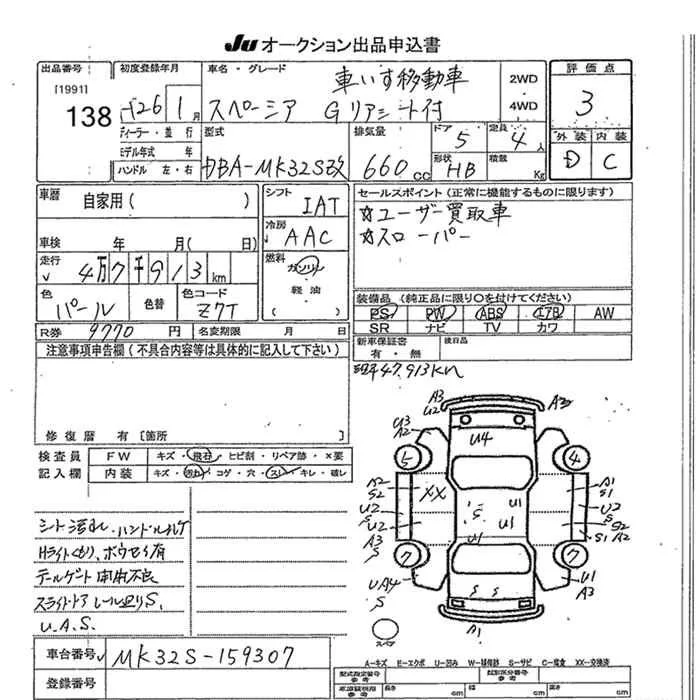 JU オークション出品申込書
出品番号 初度登録年月 車名・グレード 車いす移動車 2WD 評価点
[1991] 138 H26 1月 スペーシア Gリアシート付 4WD 3
ディーラー・並行 型式 排気量 ドア 5 定員 4人 外装 内装
モデル年式 年 DBA-MK32S改 660cc 形状 HB 積載 Kg D C
ハンドル 左・右
車歴 自家用( ) シフト IAT セールスポイント(正常に機能するものに限ります)
車検 年 月( 日) 冷房 AAC ☆ユーザー買取車
☆スローパー
走行 4万7千913km 燃料 ガソリン
軽油
( )
色 パール 色替 色コード Z7T 装備品(純正品に限り○を付けてください)
PS PW ABS エアB AW
R券 9770円 名変期限 月 日 SR ナビ TV カワ
注意事項申告欄(不具合内容等は具体的に記入して下さい) 新車保証書 後日品
有・無
47,913km
修復歴 有[箇所 ]
検査員 FW キズ・飛石・ヒビ割・リペア跡・×要
記入欄 内装 キズ・汚れ・コゲ・穴・スレ・キレ・破レ
A3 U2 A3
U3 A2 U4
5 4
A2 S2 XX U1 A1 S1
U2 S U2 S U1 U2 S S2
A3 S U1 S1 A2
7 7
UA4 S S S U1 A3
A1
スペア
シート汚れ、ハンドルハゲ
Hライトくもり、ボウセイ有
テールゲート開閉不良
スライドドアレール辺りS、
U.A.S.
A-キズ E-エクボ U-凹み W-補修跡 S-サビ C-腐食 XX-交換済
車台番号 MK32S-159307 型式指定番号 参考 類別区分番号 参考
登録番号 長さ cm 幅 cm 高さ cm